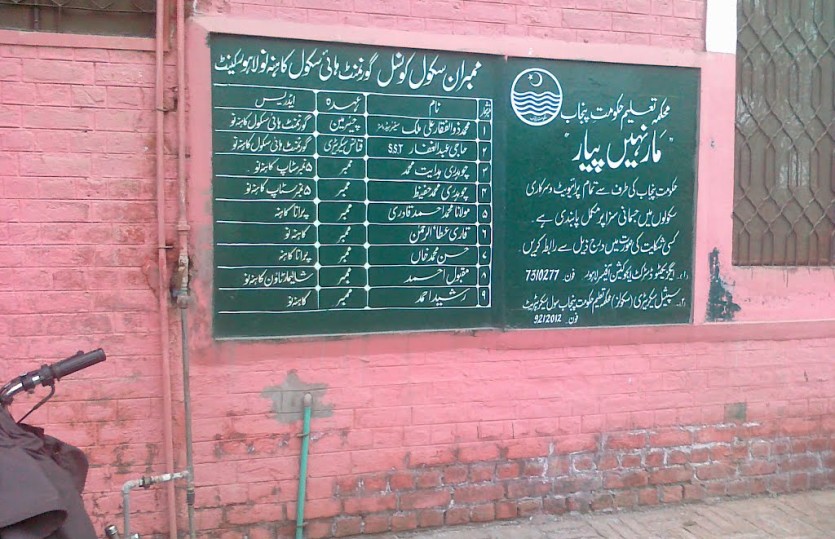 ممبران سکول کونسل گورنمنٹ ہائی سکول کاہنہ نو لاہور کینٹ
نمبر شمار نام عہدہ ایڈریس
۱ محمد ذوالفقار علی ملک سینئر ہیڈ ماسٹر چیئرمین گورنمنٹ ہائی سکول کاہنہ نو
۲ حاجی عبدالغفار S.S.T فنانس سیکرٹری گورنمنٹ ہائی سکول کاہنہ نو
۳ چوہدری ہدایت محمد ممبر سٹاپ کاہنہ نو
۴ چوہدری محمد حفیظ ممبر سٹاپ کاہنہ نو
۵ مولانا محمد احمد قادری ممبر پرانا کاہنہ
۶ قاری عطاء الرحمٰن ممبر کاہنہ نو
۷ حسن محمد خاں ممبر پرانا کاہنہ
۸ مقبول احمد ممبر شالیمار ٹاؤن کاہنہ نو
۹ رشید احمد ممبر کاہنہ نو
محکمہ تعلیم حکومت پنجاب
"مار نہیں پیار"
حکومت پنجاب کی طرف سے تمام پرائیویٹ و سرکاری
سکولوں میں جسمانی سزا پر مکمل پابندی ہے۔
کسی شکایت کی صورت میں درج ذیل سے رابطہ کریں
۱۔ ایگزیکٹو ڈسٹرکٹ ایجوکیشن آفیسر لاہور فون 7310277
۲۔ سپیشل سیکریٹری (سکولز) محکمہ تعلیم حکومت پنجاب سول سیکریٹریٹ
فون 9212012